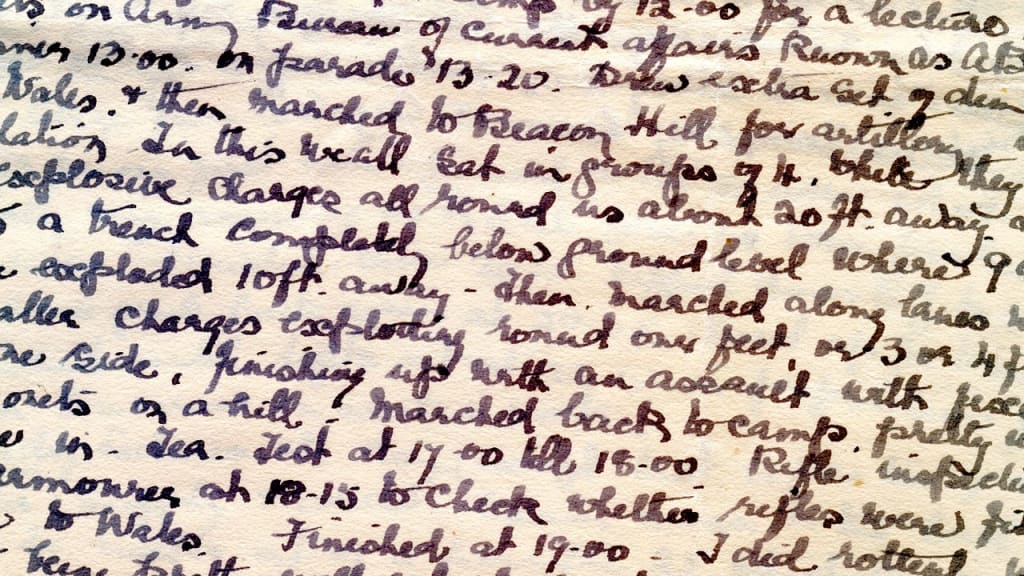 on Army Bureau of Current affairs Known as AB
13.00. on parade 13.20. Drew extra set of den
Wales. & then marched to Beacon Hill for artillery
lation In this we all sat in groups of 4, while they
explosive charges all round us about 20ft. away.
a trench completely below ground level where 9
exploded 10ft. away - Then marched along lanes
aller charges exploding round our feet, or 3 or 4 f
one side, finishing up with an assault with fixed
onets on a hill. Marched back to camp, pretty
in. Tea. Test at 17-00 till 18-00 Rifle inspecti
armourer at 18-15 to check whether rifles were fi
to Wales. Finished at 19-00 - I did rotten